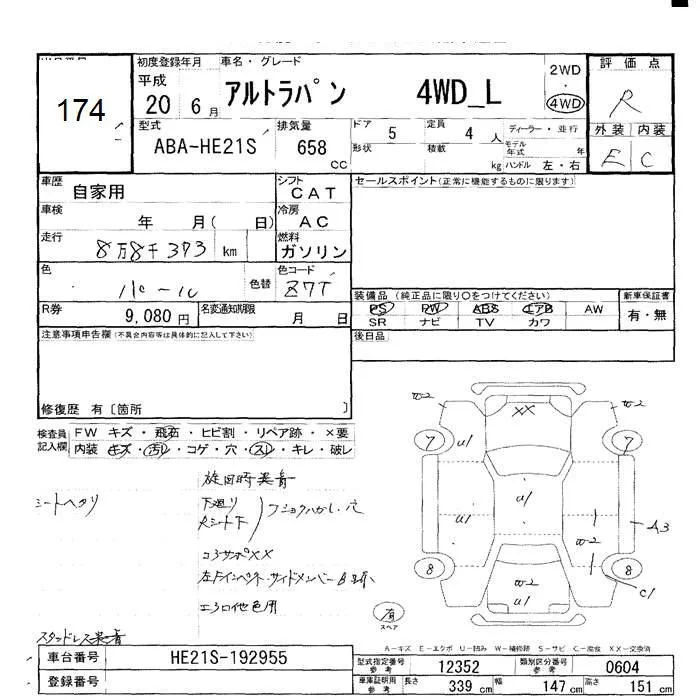 初度登録年月 車名・グレード 2WD 評価点
平成
174 20年 6月 アルトラパン 4WD_L 4WD R
型式 排気量 ドア 5 定員 4人 ディーラー・並行 外装 内装
ABA-HE21S 658 CC 形状 積載 kg モデル年式 年 ハンドル 左・右 E C
車歴 自家用 シフト CAT セールスポイント(正常に機能するものに限ります)
車検 年 月( 日) 冷房 AC
走行 8万8千373 km 燃料 ガソリン
色 パール 色替 色コード Z7T
装備品 (純正品に限り○をつけてください) 新車保証書
R券 9,080円 名変通知期限 月 日 PS PW ABS エアB AW 有・無
SR ナビ TV カワ
注意事項申告欄(不具合内容等は具体的に記入して下さい) 後日品
修復歴 有〔箇所 〕
検査員記入欄 FW キズ・飛石・ヒビ割・リペア跡・×要
内装 キズ・汚レ・コゲ・穴・スレ・キレ・破レ
旋回時異音
シートヘタリ 下廻り
シート下
コアサポXX
左Fインペネ・サイドメンバー
エンジン他色用
スタッドレス
W2 XX W2
7 U1 7
U1 U1 A3
W2
8 W2 U1 8 C1
有 スペア
A-キズ E-エクボ U-凹み W-補修跡 S-サビ C-腐食 XX-交換済
車台番号 HE21S-192955 型式指定番号 参考 12352 類別区分番号 参考 0604
登録番号 車庫証明用 参考 長さ 339 cm 幅 147 cm 高さ 151 cm